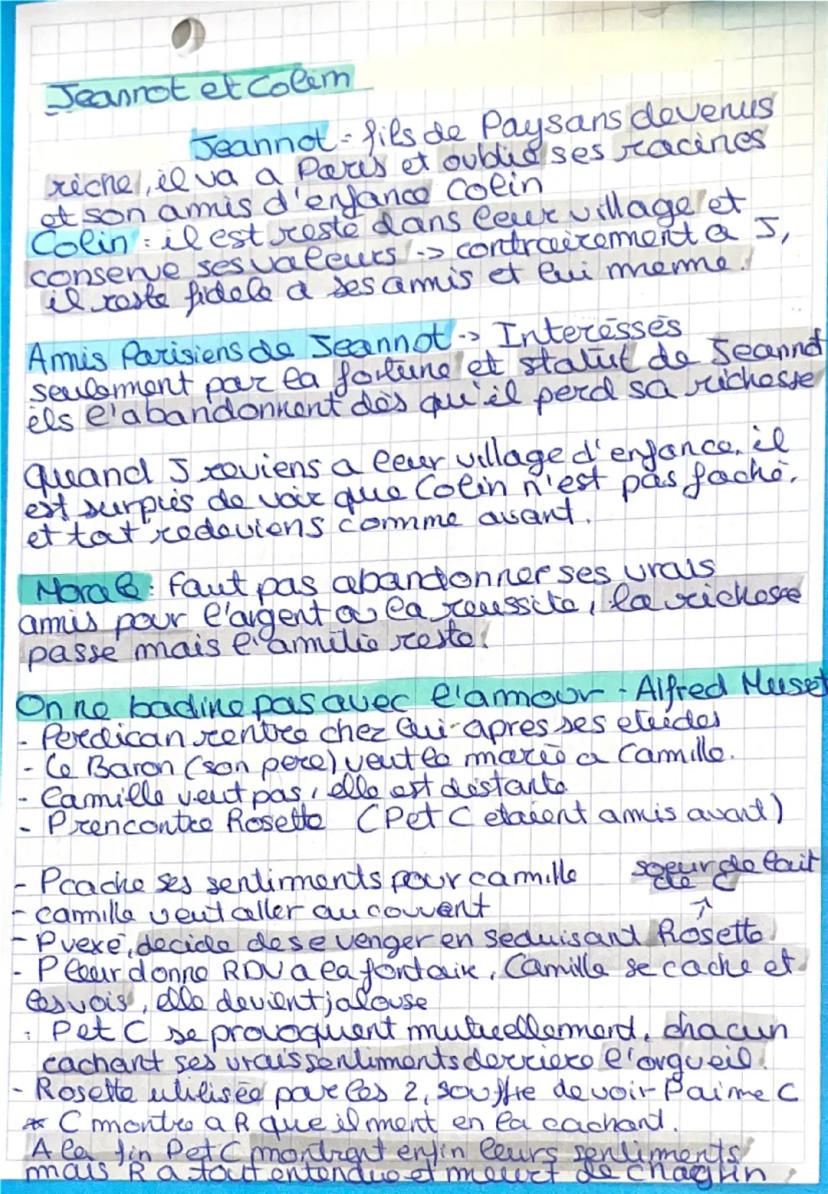 Jeannot et Colin
Jeannot = fils de Paysans devenus
riche, il va a Paris et oublie ses racines
et son amis d'enfance Colin
Colin : il est resté dans leur village et
conserve ses valeurs -> contrairement a J,
il reste fidele a ses amis et lui meme.
Amis Parisiens de Jeannot -> Interéssés
seulement par la fortune et statut de Jeannot
ils l'abandonnent dès qu'il perd sa richesse
quand J reviens a leur village d'enfance, il
est surpris de voir que Colin n'est pas faché,
et tout redeviens comme avant.
Morale : faut pas abandonner ses vrais
amis pour l'argent ou la reussite, la richesse
passe mais l'amitié reste.
On ne badine pas avec l'amour - Alfred Musset
- Perdican rentre chez lui apres ses etudes
- Le Baron (son pere) veut le marié a Camille.
- Camille veut pas, elle est distante
- P rencontre Rosette (P et C etaient amis avant)
- P cache ses sentiments pour camille soeur de lait
de C
- camille veut aller au couvent ↑
- P vexé, decide de se venger en seduisant Rosette
- P leur donne RDV a la fontaine, Camille se cache et
les vois, elle devient jalouse
: P et C se provoquent mutuellement, chacun
cachant ses vrais sentiments derriere l'orgueil.
- Rosette utilisée par les 2, souffre de voir P aime C
* C montre a R que il ment en la cachant.
A la fin P et C montrent enfin leurs sentiments
mais R a tout entendue et meurt de chagrin